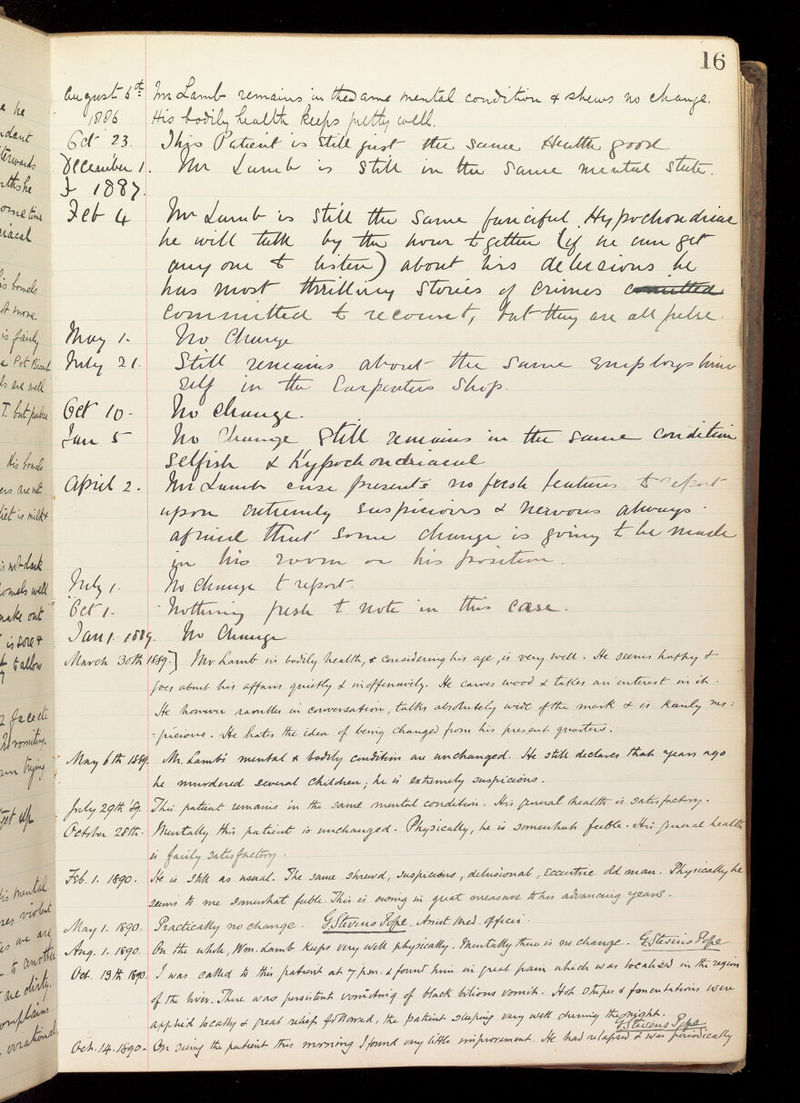 16
August 6th Mr Lamb remains in the same mental condition & shews no change.
1886 His bodily health keeps pretty well.
Oct 23. This Patient is still just the same Health good
December 1. Mr Lamb is still in the same mental state.
1887.
Feb 4 Mr Lamb is still the same fanciful Hypochondriac
he will talk by the hour together (if he can get
any one to listen) about his delusions he
has most thrilling stories of crimes
committed to recount, but they are all false.
May 1. No Change
July 21. Still remains about the same employs him
self in the Carpenters Shop.
Oct 10- No change.
Jan 5 No Change Still remains in the same condition
selfish & Hypochondriacal
April 2. Mr Lamb case presents no fresh features to report
upon extremely suspicious & nervous always
afraid that some change is going to be made
in his room or his position.
July 1. No Change to report.
Oct 1. Nothing fresh to note in this case.
Jan 1. 1889. No Change
March 30th 1889.] Mr Lamb in bodily health, & considering his age, is very well. He seems happy &
goes about his affairs quietly & inoffensively. He carves wood & takes an interest in it.
He however rambles in conversation, talks absolutely wide of the mark & is keenly sus=
=picious. He hates the idea of being changed from his present quarters.
May 6th 1889. Mr. Lamb's mental & bodily condition are unchanged. He still declares that years ago
he murdered several children; he is extremely suspicious.
July 29th 89. This patient remains in the same mental condition. His general health is satisfactory.
October 28th. Mentally this patient is unchanged. Physically, he is somewhat feeble. His general health
is fairly satisfactory.
Feb. 1. 1890. He is still as usual. The same shrewd, suspicious, delusional, eccentric old man. Physically he
seems to me somewhat feeble. This is owing in great measure to his advancing years.
May 1. 1890. Practically no change. G. Stevens Pope, Assist Med. Officer.
Aug. 1. 1890. On the whole, Wm. Lamb keeps very well physically. Mentally there is no change. G. Stevens Pope
Oct. 13th 1890. I was called to this patient at 7 p.m. & found him in great pain which was localised in the region
of the liver. There was persistent vomiting of black bilious vomit. Hot stupes & fomentations were
applied locally & great relief followed, the patient sleeping very well during the night.
G. Stevens Pope
Oct. 14. 1890- On seeing the patient this morning I found very little improvement. He had relapsed & was periodically